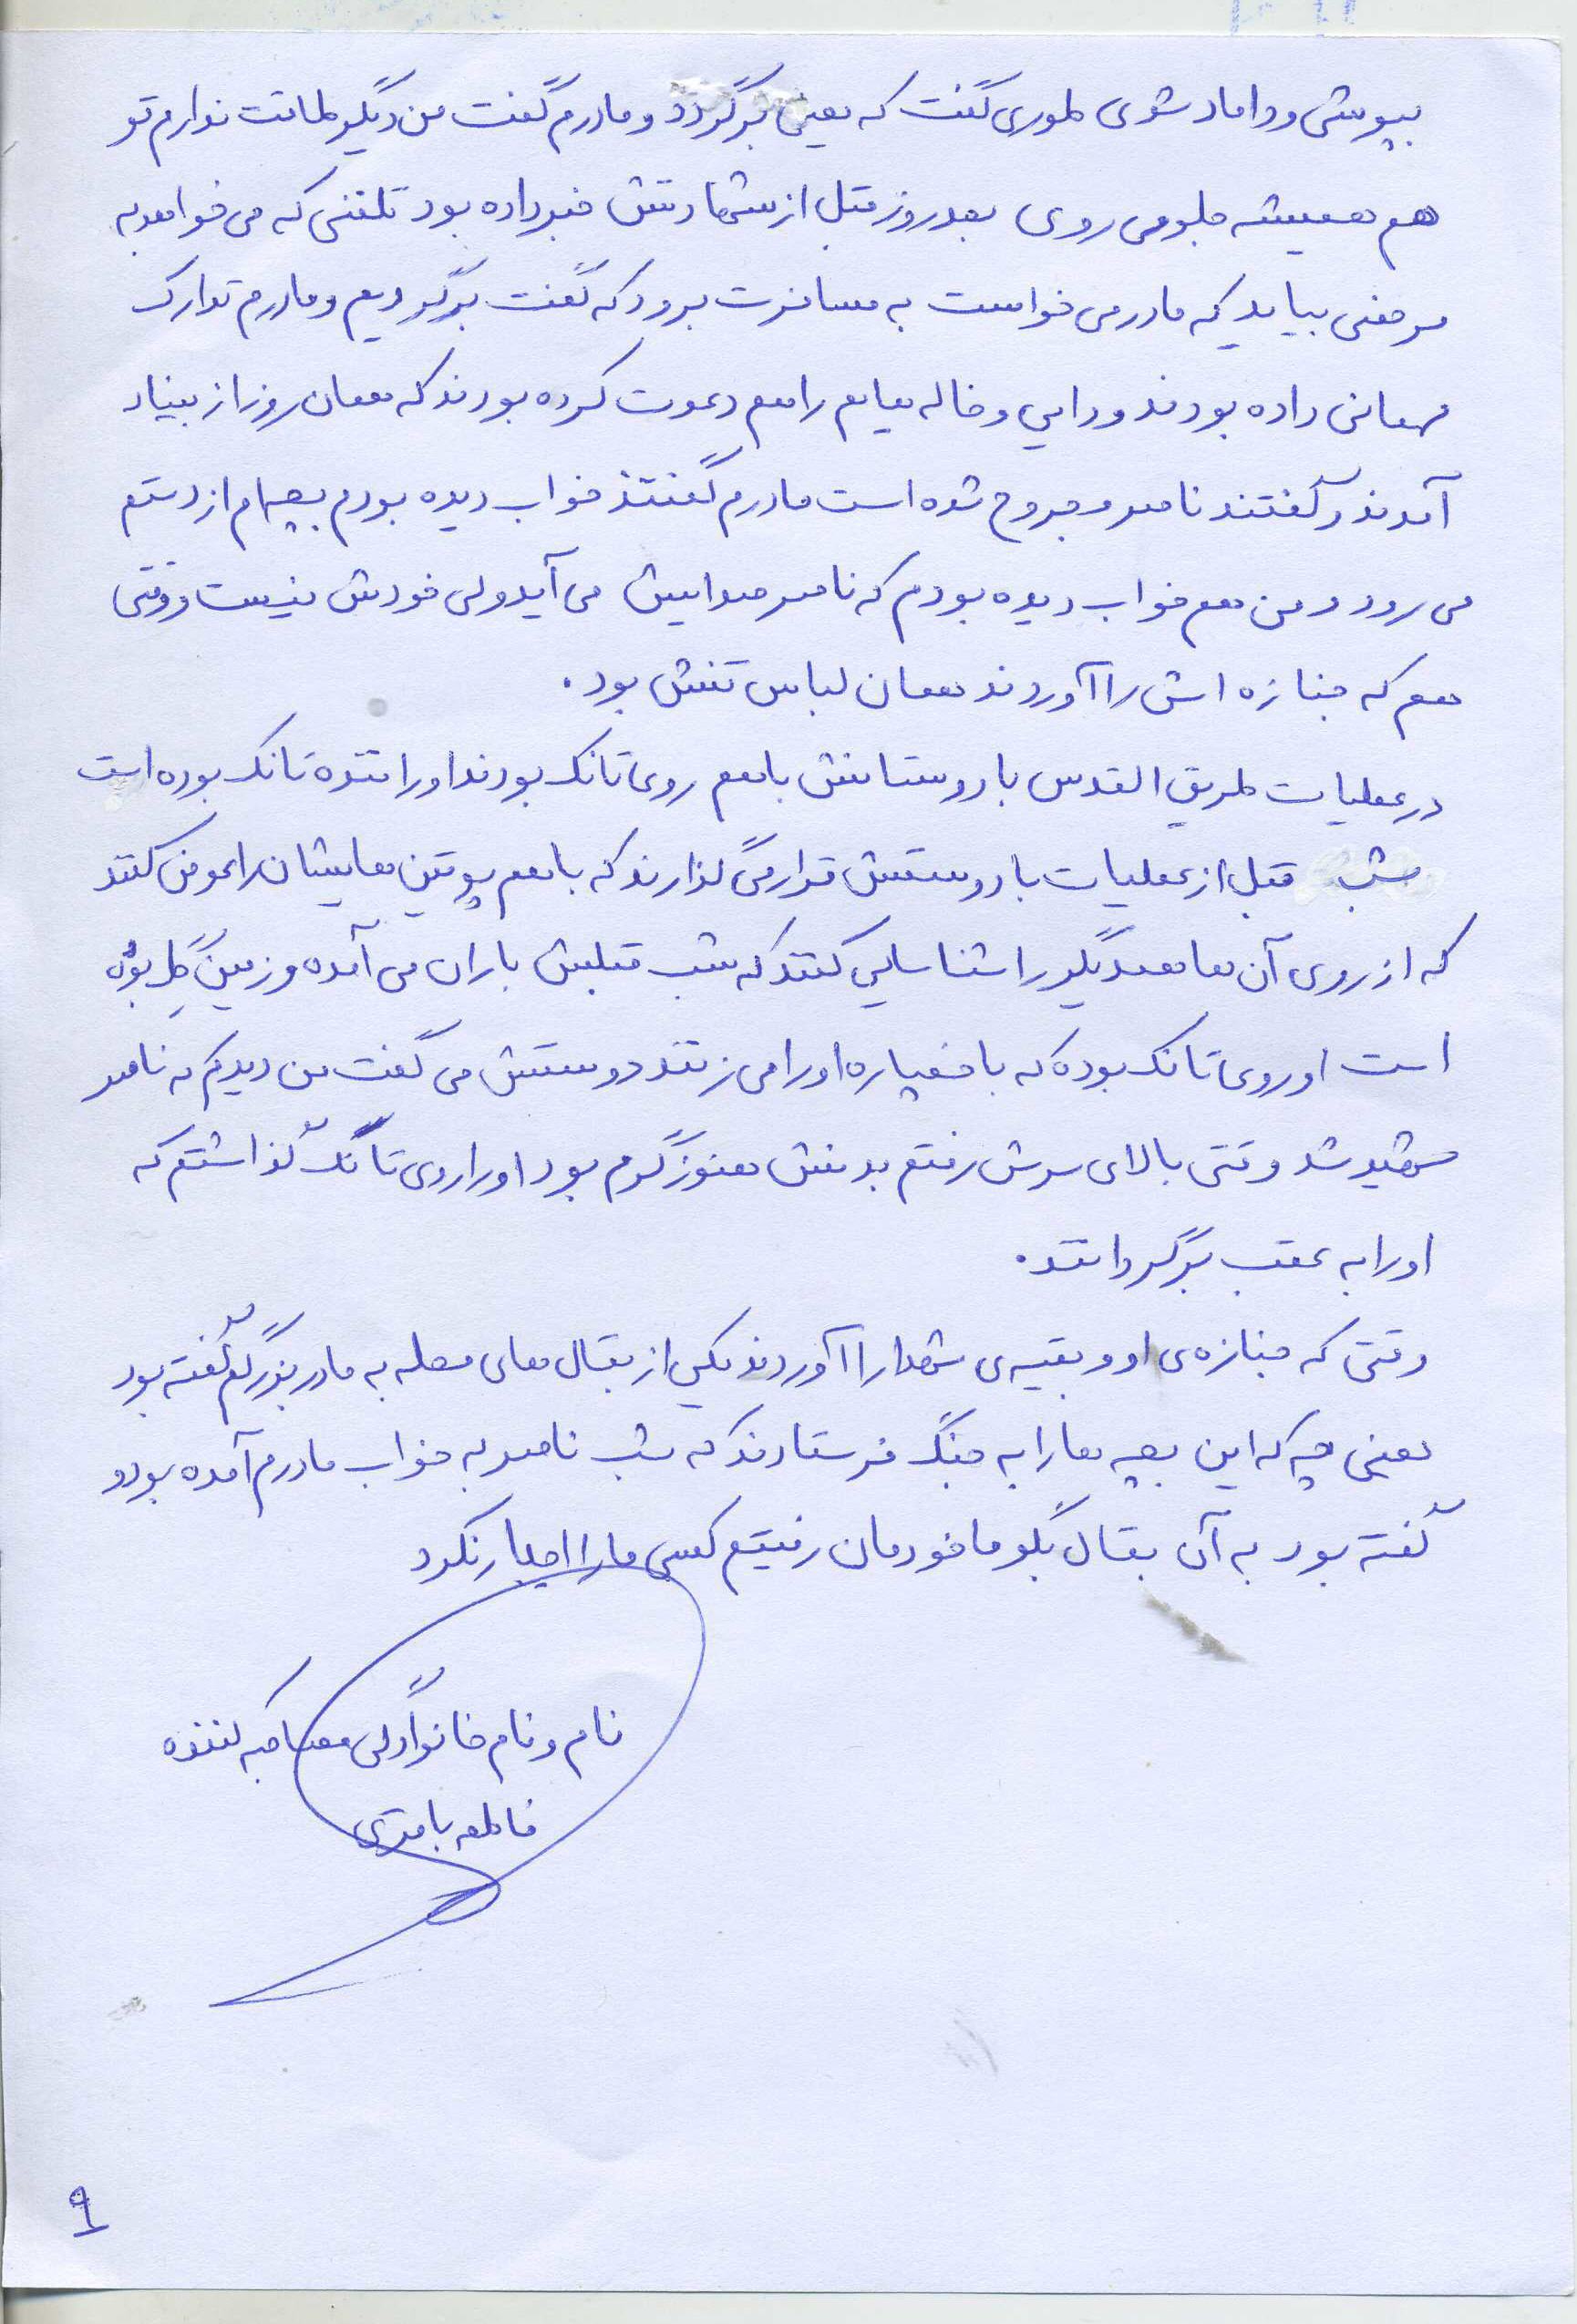 بپوشی و داماد شوی طوری گفت که یعنی برگردد و مادرم گفت من دیگر طاقت ندارم تو
هم همیشه جلو می روی بعد روز قبل از شهادتش خبر داده بود تلفنی که می خواهد به
مرخصی بیاید که مادر می خواست به مسافرت برود که گفت برگردیم و مادرم تدارک
مهمانی داده بودند و دایی و خاله هایم را هم دعوت کرده بودند که همان روز از بنیاد
آمدند و گفتند ناصر مجروح شده است مادرم گفتند خواب دیده بودم بچه ام از دستم
می رود و من هم خواب دیده بودم که ناصر صدایش می آید ولی خودش نیست و وقتی
هم که جنازه اش را آوردند همان لباس تنش بود.
در عملیات طریق القدس با دوستانش باهم روی تانک بودند او راننده تانک بوده است
شب قبل از عملیات با دوستش قرار می گذارند که باهم پوتین هایشان را عوض کنند
که از روی آن ها همدیگر را شناسایی کنند که شب قبلش باران می آمده و زمین گِل بوده
است او روی تانک بوده که با خمپاره او را می زنند دوستش می گفت من دیدم که ناصر
شهید شد وقتی بالای سرش رفتم بدنش هنوز گرم بود او را روی تانک گذاشتم که
او را به عقب برگردانند.
وقتی که جنازه ی او و بقیه ی شهدا را آوردند یکی از بقال های محله به مادربزرگم گفته بود
یعنی چه که این بچه ها را به جنگ فرستادند که شب ناصر به خواب مادرم آمده بود و
گفته بود به آن بقال بگو ما خودمان رفتیم کسی ما را اجبار نکرد
نام و نام خانوادگی مصاحبه کننده
فاطمه باقری
۹